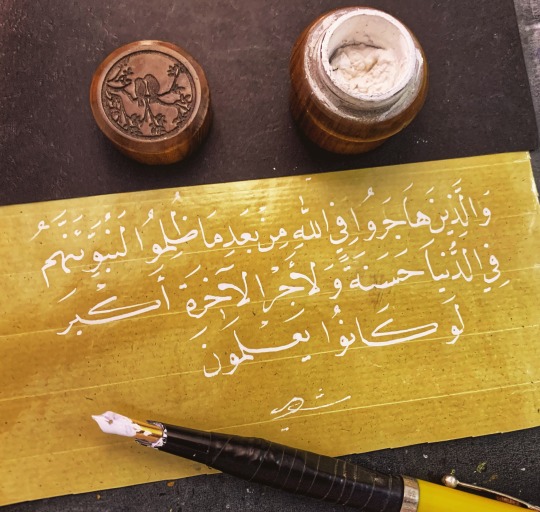 وَالَّذِينَ هَاجَرُوا فِي اللَّهِ مِنْ بَعْدِ مَا ظُلِمُوا لَنُبَوِّئَنَّهُمْ
فِي الدُّنْيَا حَسَنَةً وَلَأَجْرُ الْآخِرَةِ أَكْبَرُ
لَوْ كَانُوا يَعْلَمُونَ